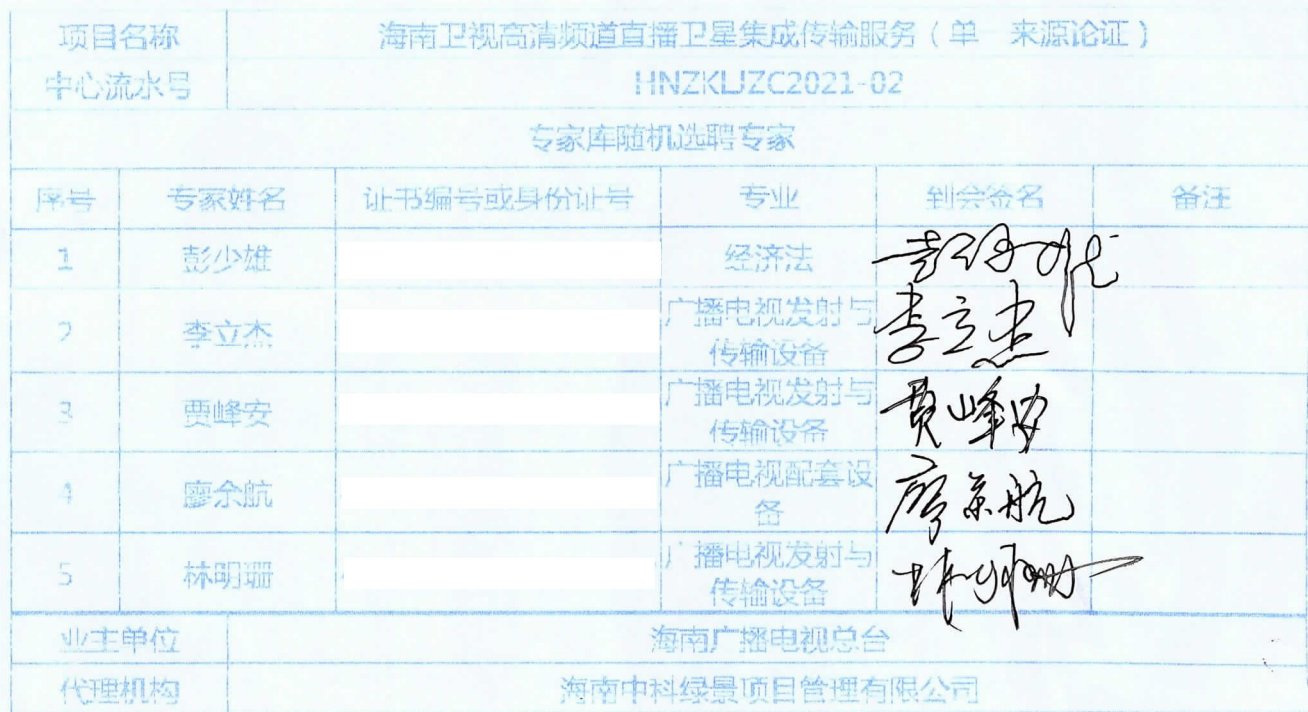 项目名称 海南卫视高清频道直播卫星集成传输服务（单 来源论证）
中心流水号 HNZKLJZC2021-02
专家库随机选聘专家
序号 专家姓名 证书编号或身份证号 专业 到会签名 备注
1 彭少雄 经济法 彭少雄
2 李立杰 广播电视发射与传输设备 李立杰
3 贾峰安 广播电视发射与传输设备 贾峰安
4 廖余航 广播电视配套设备 廖余航
5 林明珊 广播电视发射与传输设备 林明珊
业主单位 海南广播电视总台
代理机构 海南中科绿景项目管理有限公司